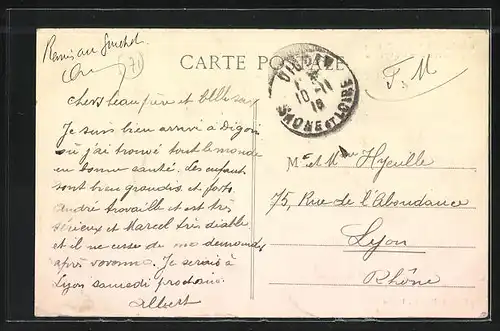 CARTE POSTALE
DIGOIN
10-11
16
SAONE ET LOIRE
F. M
71
Chers beau frère et belle
Je suis bien arrivé à Digoin
où j'ai trouvé tout le monde
en bonne santé. Les enfants
sont bien grandis et forts
andré travaille et est très
sérieux et Marcel très diable
et il ne cesse de me demander
après
Je serais à
Lyon samedi prochain
Albert
M et Mme Hyeulle
75, Rue de l'Abondance
Lyon
Rhône